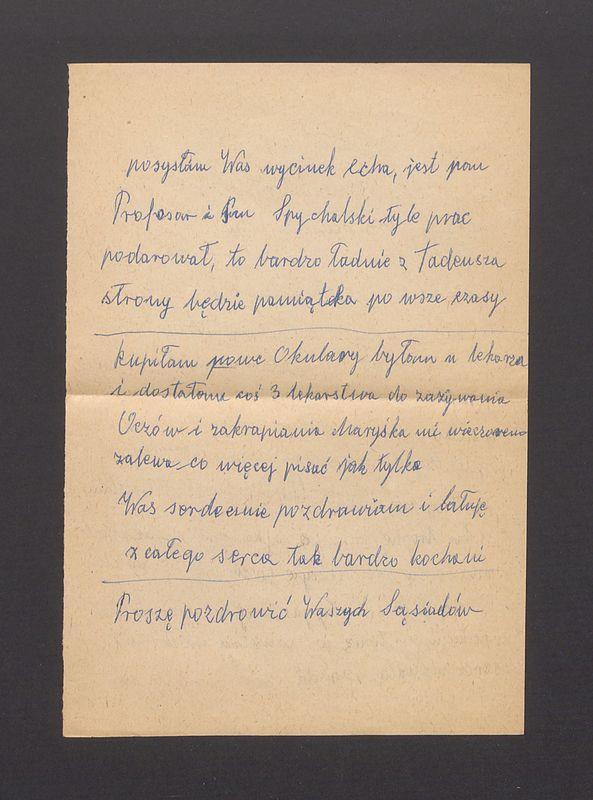 posyłam Was wycinek Echa, jest pan
Profesor i Pan Spychalski tyle prac
podarował, to bardzo ładnie z Tadeusza
strony będzie pamiątka po wsze czasy
kupiłam nowe Okulary byłam u lekarza
i dostałam coś 3 lekarstwa do zażywania
Oczów i zakrapiania Maryśka mi wieczorem
zalewa co więcej pisać jak tylko
Was serdecznie pozdrawiam i całuję
z całego serca tak bardzo kochani
Proszę pozdrowić Waszych Sąsiadów